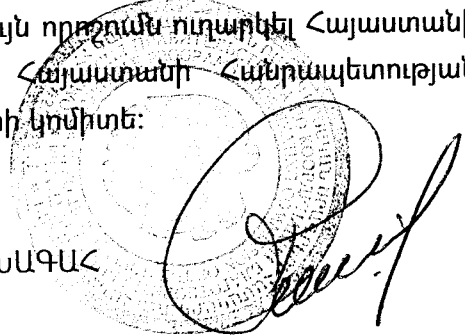 յն որոշումն ուղարկել Հայաստանի
Հայաստանի Հանրապետության
կոմիտե:
ԱԳԱՀ